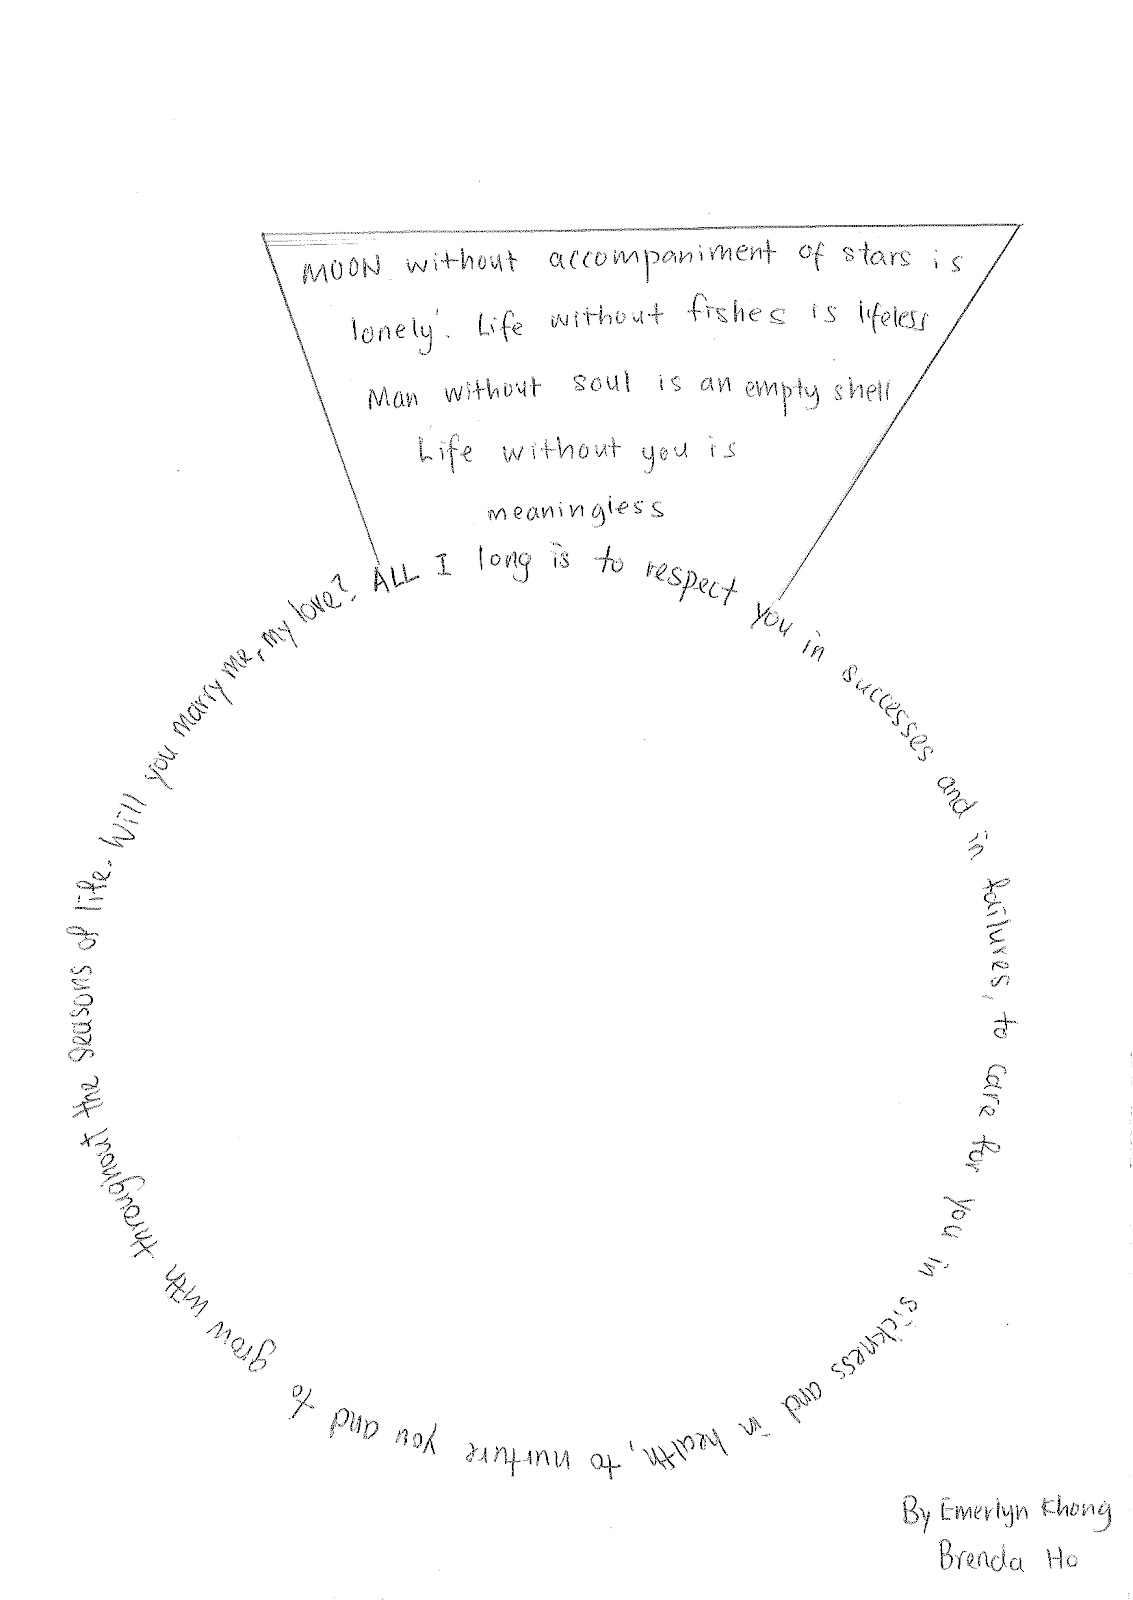 MOON without accompaniment of stars is
lonely'. Life without fishes is lifeless
Man without soul is an empty shell
Life without you is
meaningless
ALL I long is to respect you in successes and in failures, to care for you in sickness and in health, to nurture you and to grow with throughout the seasons of life. Will you marry me, my love?
By Emerlyn Khong
Brenda Ho